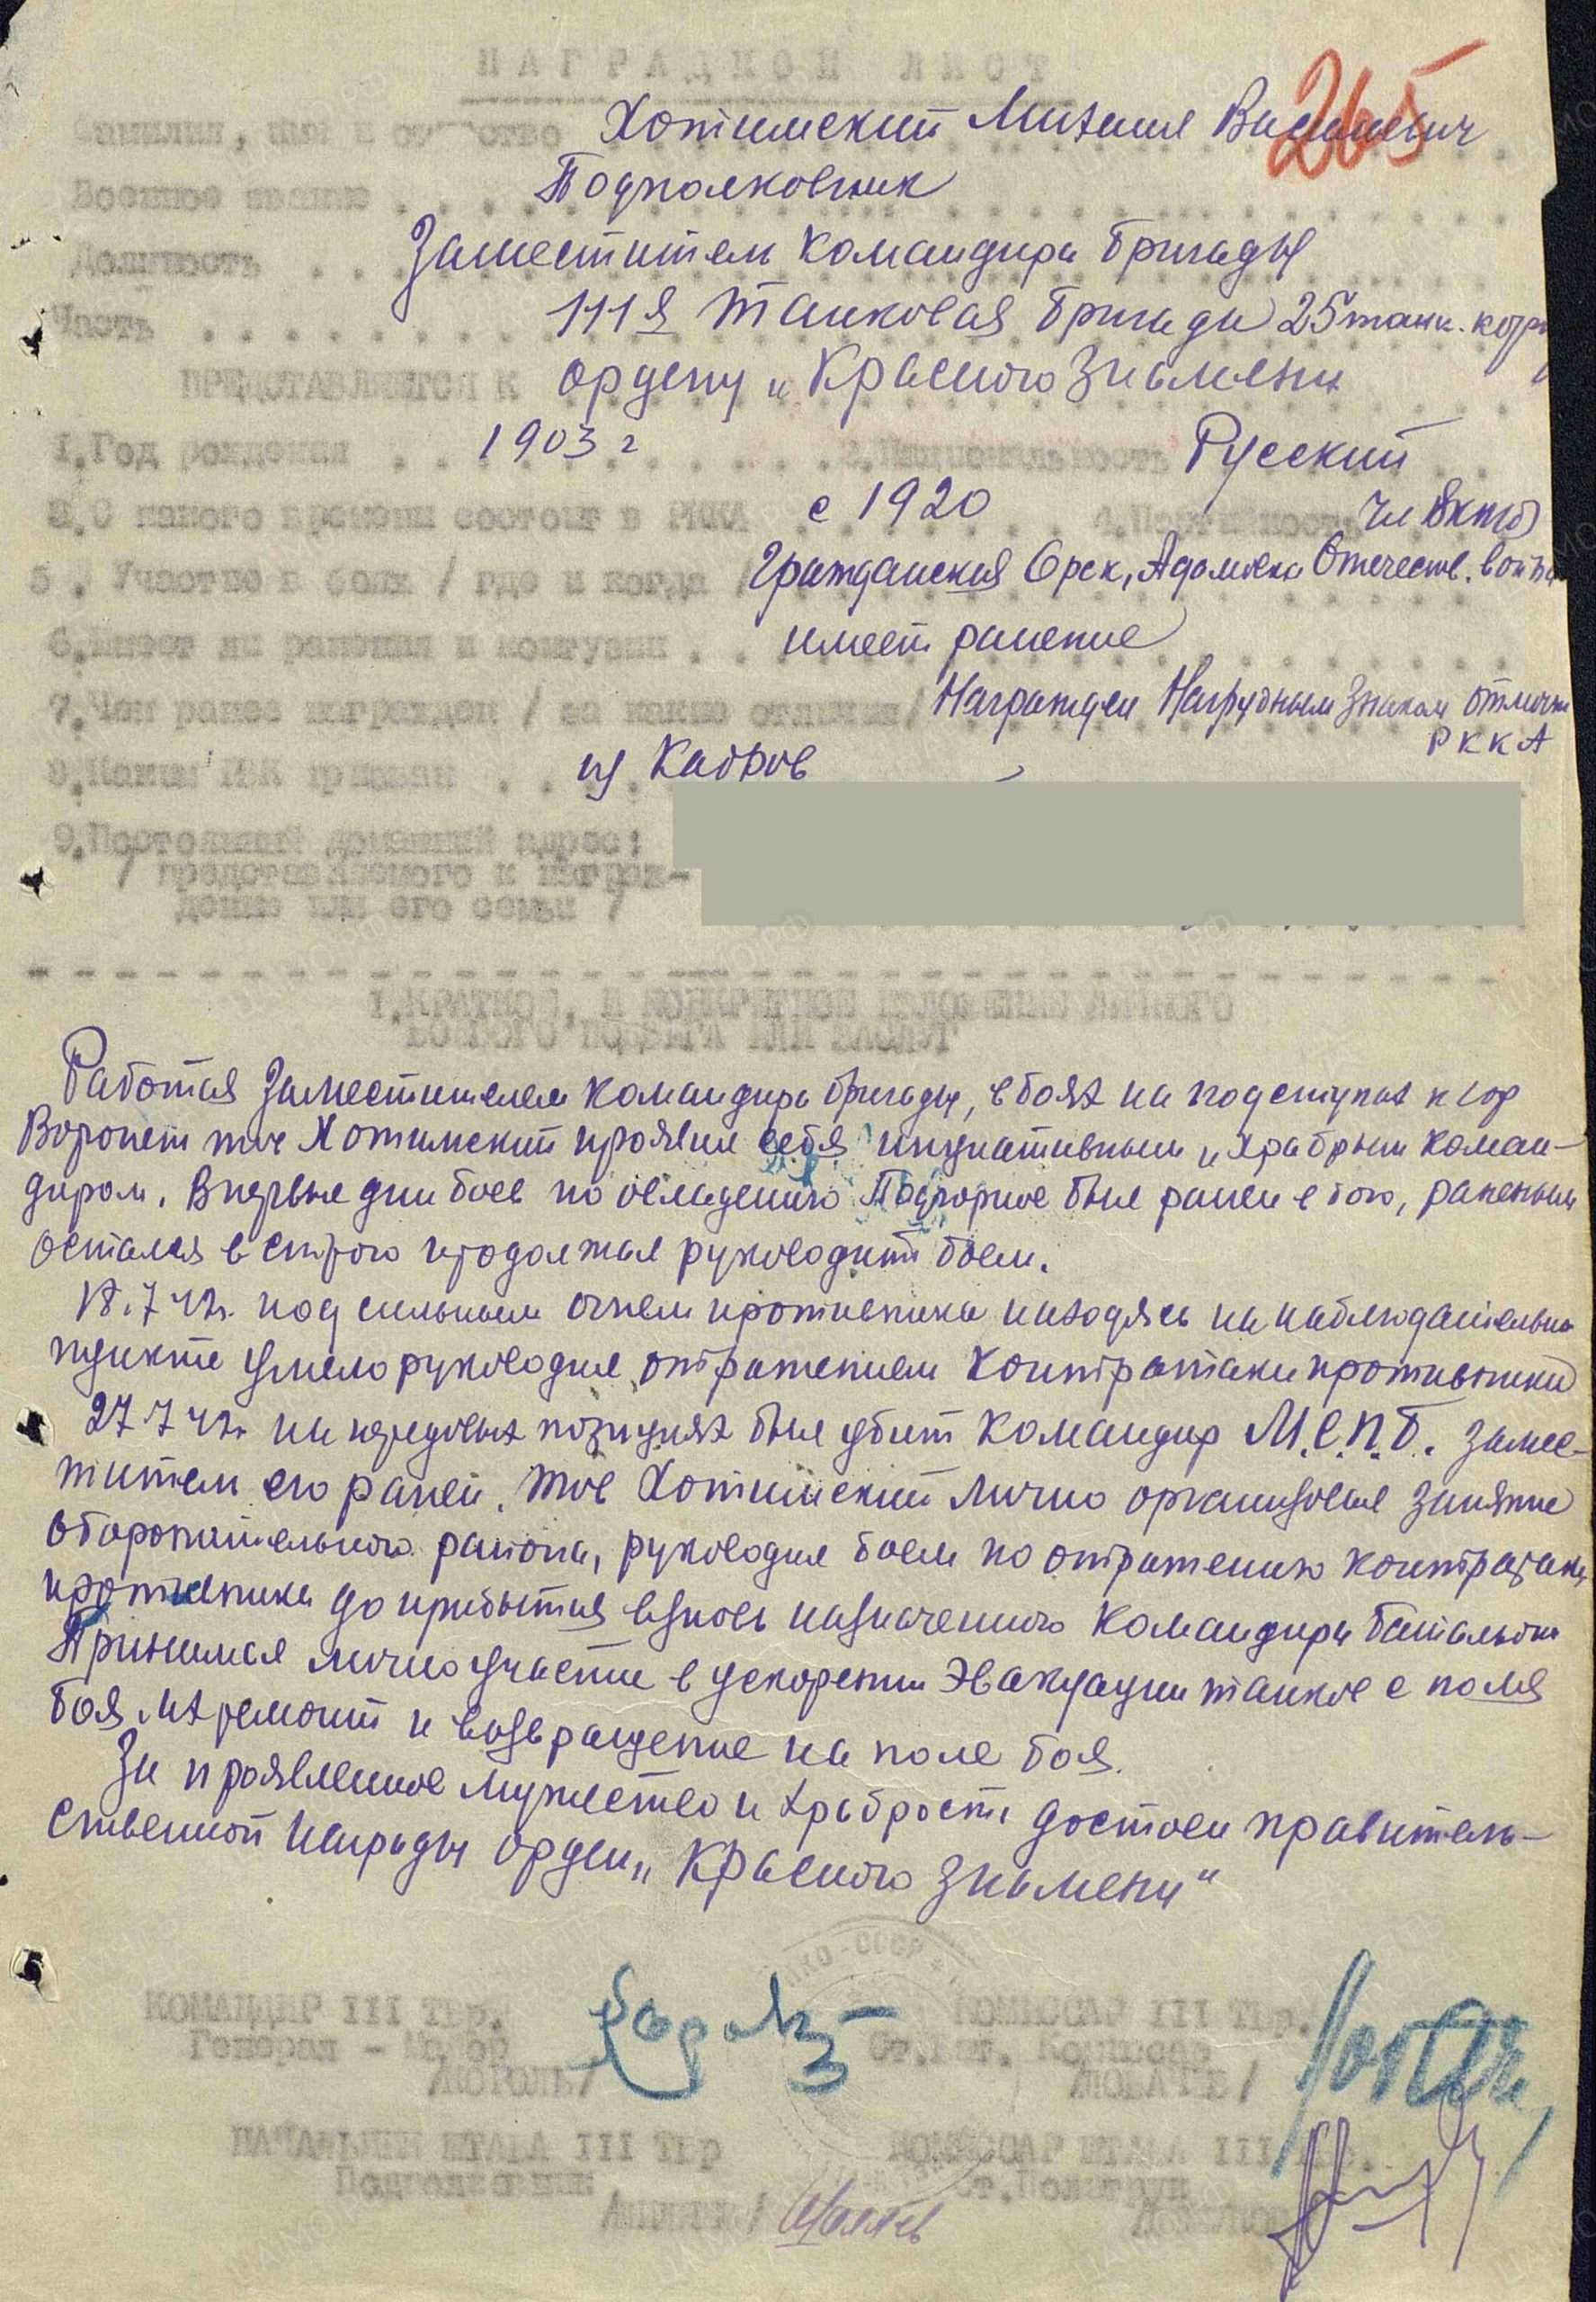 НАГРАДНОЙ ЛИСТ
265
Фамилия, имя и отчество Хотимский Михаил Васильевич
Военное звание . . . Подполковник
Должность . . . Заместитель Командира бригады
Часть . . . 111я танковая бригада 25 танк. корп
ПРЕДСТАВЛЯЕТСЯ К ордену „Красного Знамени
1.Год рождения . . . 1903 г 2.Национальность Русский
3.С какого времени состоит в РККА с 1920 4.Партийность Чл ВКПб
5. Участие в боях / где и когда / Гражданская Орск, Отечеств. война
6.Имеет ли ранения и контузии . . имеет ранение
7.Чем ранее награжден / за какие отличия/ Награжден Нагрудным Знаком отличн
РККА
8.Каким РВК призван . . . из Кадров
9.Постоянный домашний адрес:
/ представляемого к награж-
дению или его семьи /
1.КРАТКОЕ, И КОНКРЕТНОЕ ИЗЛОЖЕНИЕ ЛИЧНОГО
БОЕВОГО ПОДВИГА ИЛИ ЗАСЛУГ
Работая Заместителем Командира бригады, в боях на подступах к гор
Воронеж тов Хотимский проявил себя инициативным и храбрым коман-
диром. В первые дни боев по овладению Подгорное был ранен в бою, раненым
остался в строю продолжал руководить боем.
18.7 42г. под сильным огнем противника находясь на наблюдательно
пункте умело руководил отражением контратаки противника
27 7 42г на передовых позициях был убит командир М.С.П.Б. замес-
титель его ранен. тов Хотимский лично организовал занятие
оборонительного района, руководил боем по отражению контратаки
противника до прибытия вновь назначенного командира батальона
Принимал лично участие в ускорении Эвакуации танков с поля
боя их ремонт и возвращение на поле боя.
За проявленное мужество и храбрость достоен правитель-
ственной награды орден „Красного Знамени"
НКО-СССР
КОМАНДИР III ТБр. КОМИССАР III ТБр.
Генерал - Майор Ст.Бат. Комиссар
НАЧАЛЬНИК ШТАБА III ТБр КОМИССАР ШТАБА III ТБр.
Подполковник Ст.Политрук